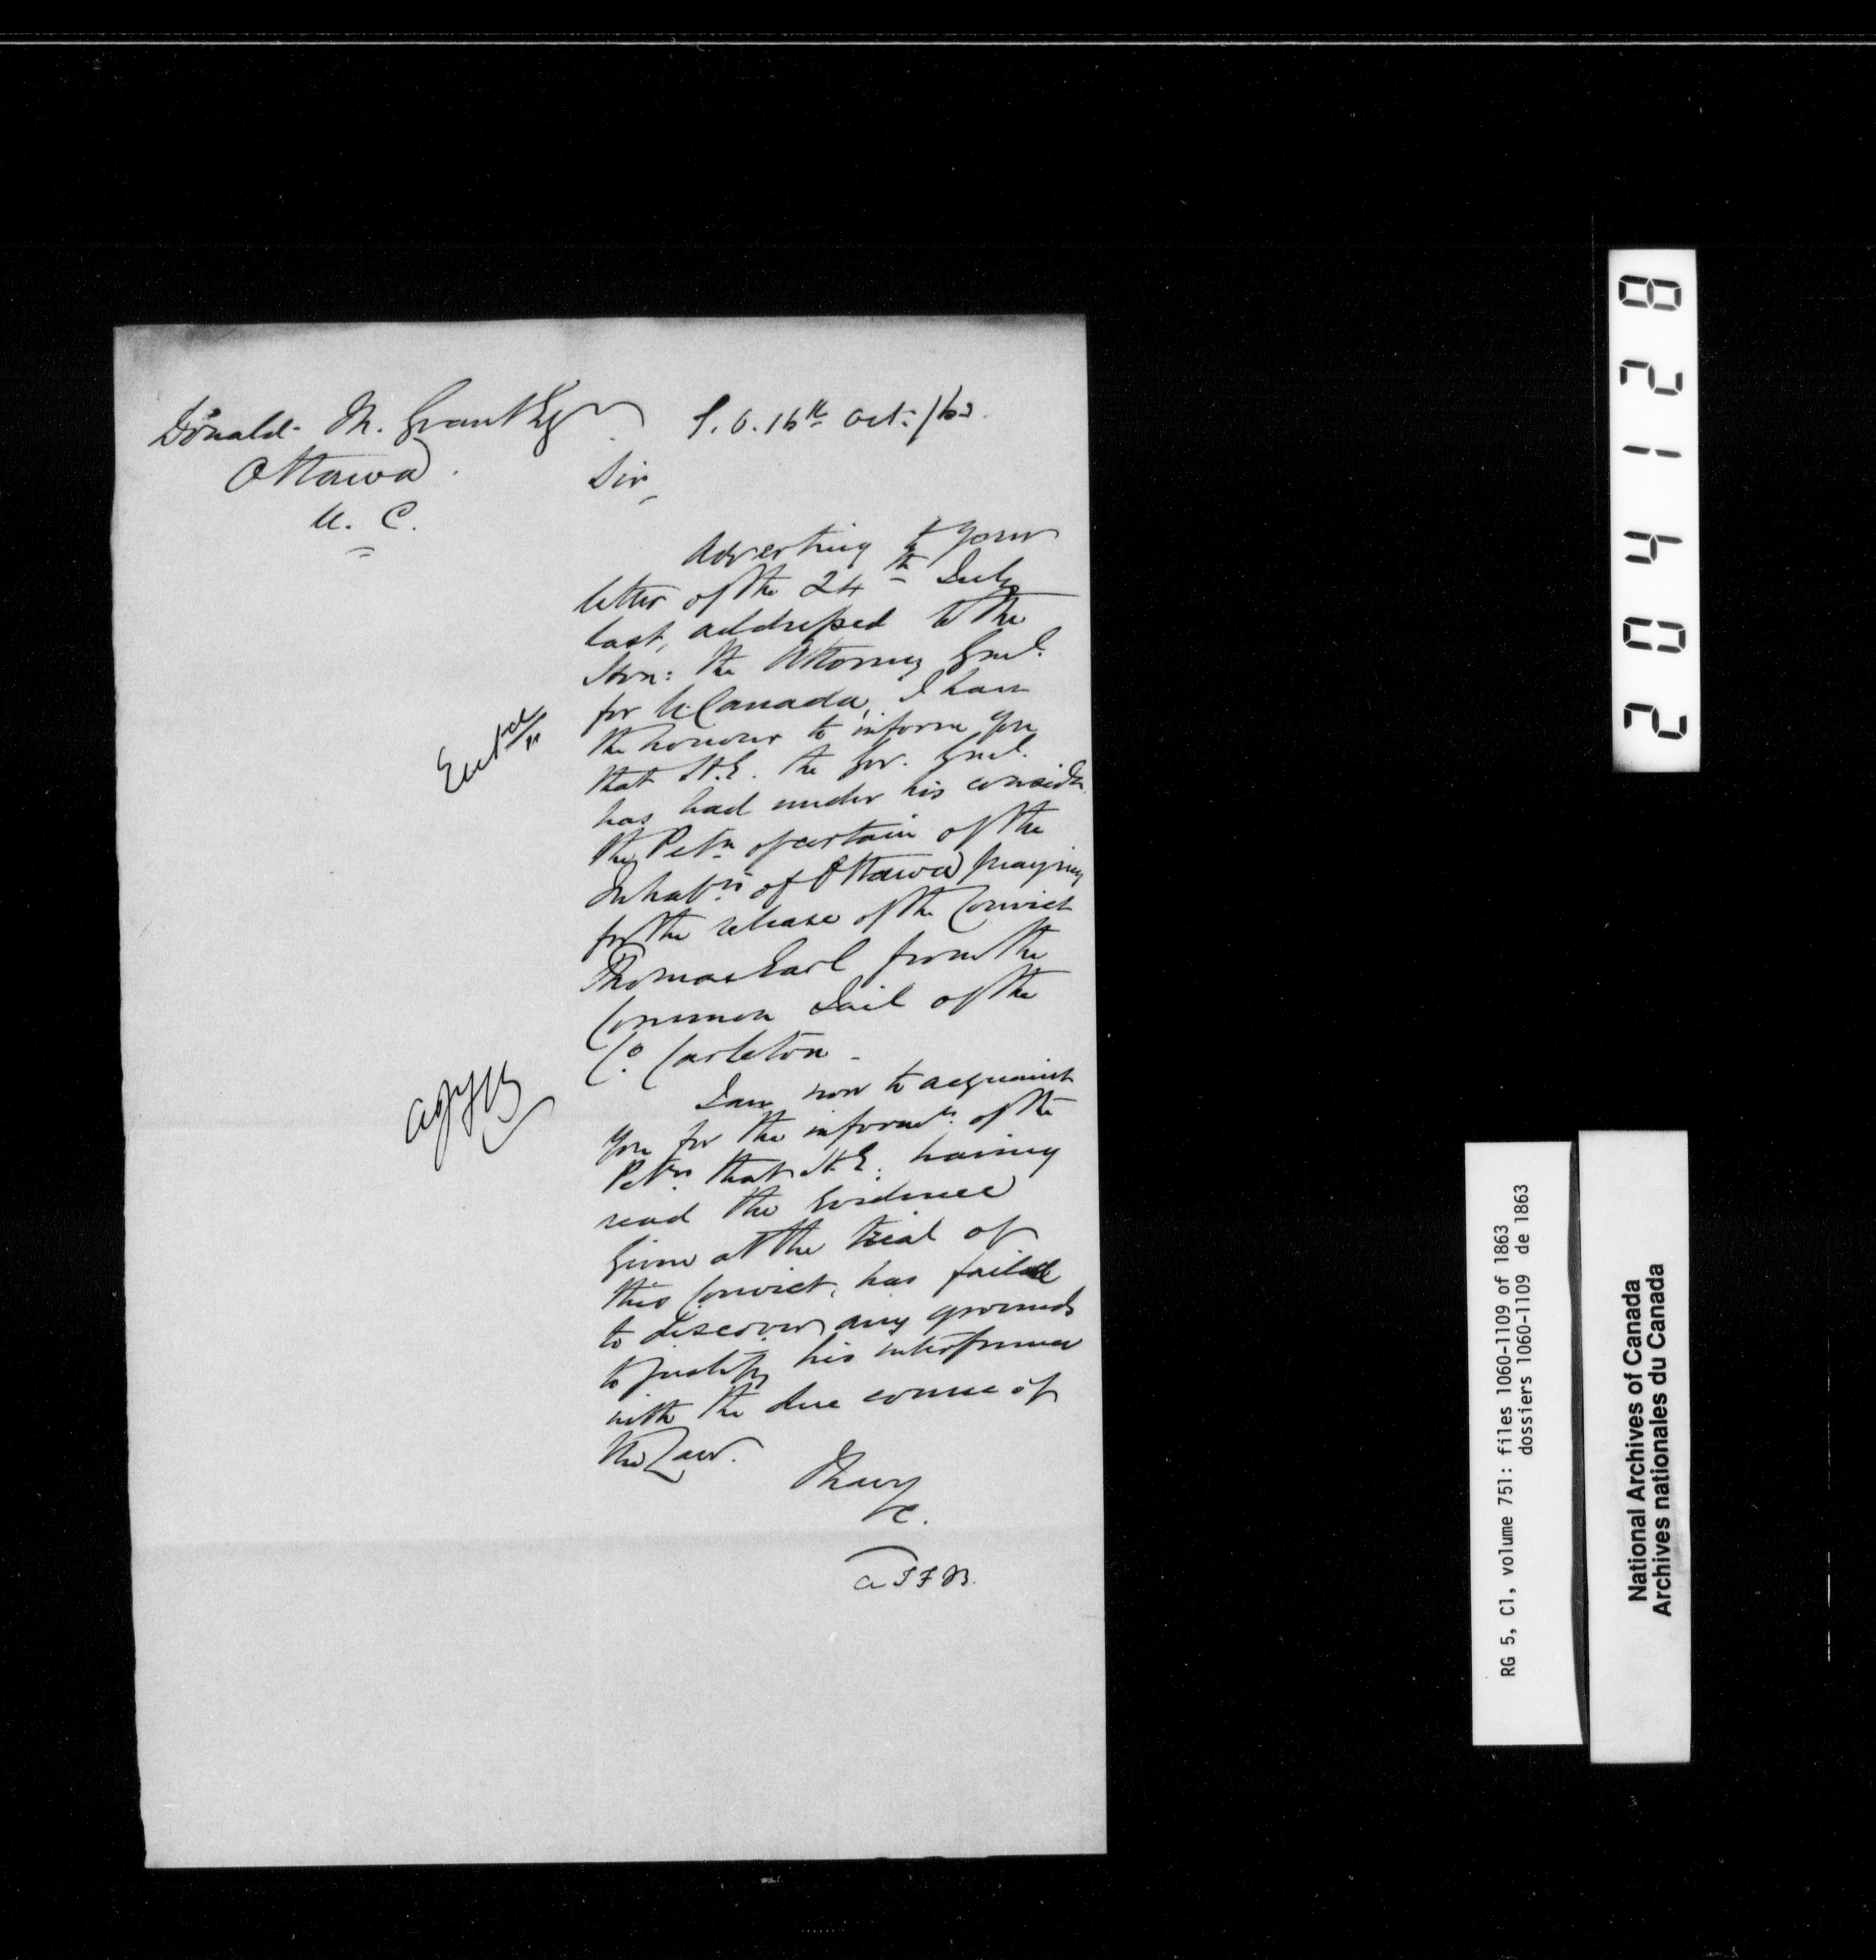 Donald M. Grant Esq
Ottawa
U. C.
S. O. 16th Oct. /63
Sir,
Adverting to your
letter of the 24th July
last, addressed to the
Hon: the Attorney Genl.
for U. Canada, I have
the honour to inform you
that H.E. the Gov. Genl.
has had under his considn.
the Petn. of certain of the
Inhabts. of Ottawa praying
for the release of the Convict
Thomas Earl from the
Common Jail of the
Co. Carleton -
I am now to acquaint
you for the informn. of the
Petrs. that H.E. having
read the Evidence
given at the trial of
this Convict, has failed
to discover any grounds
to justify his interference
with the due course of
the Law.
I have
&c.
Entd
20412 8
RG 5, C1, volume 751: files 1060-1109 of 1863
dossiers 1060-1109 de 1863
National Archives of Canada
Archives nationales du Canada